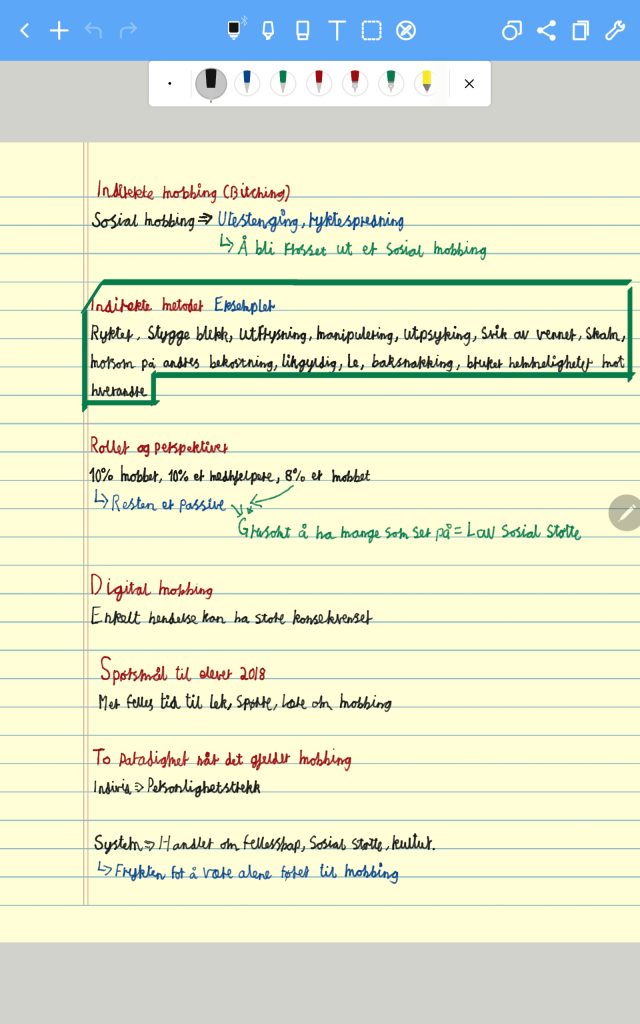 Indirekte mobbing (Bitching)
Sosial mobbing => Utestenging, ryktespredning
↳ Å bli frosset ut er sosial mobbing
Indirekte metoder Eksempler
Rykter, Stygge blikk, utfrysning, manipulering, utpsyking, Svik av venner, Skam,
morsom på andres bekostning, likgyldig, le, baksnakking, bruker hemmeligheter mot
hverandre
Roller og perspektiver
10% mobber, 10% er medhjelpere, 8% er mobbet
↳ Resten er passive
Grusomt å ha mange som ser på = Lav Sosial Støtte
Digital mobbing
Enkelt hendelse kan ha store konsekvenser
Spørsmål til elever 2018
Mer felles tid til lek, Spørre, Lære om mobbing
To paradigmer når det gjelder mobbing
Individ => Personlighetstrekk
System => Handler om fellesskap, Sosial støtte, kultur.
↳ Frykten for å være alene fører til mobbing